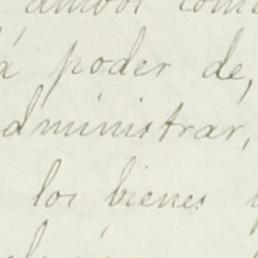 ambos com
á poder de,
dministrar,
los bienes